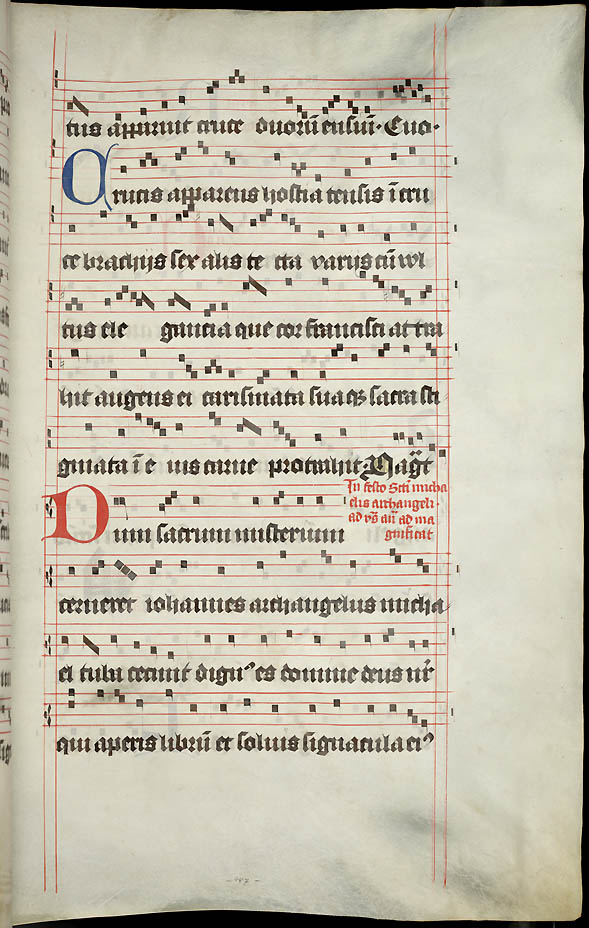 tus apparuit cruce duorū ensuū. Euo.
Crucis apparens hostia tensis ī cru
ce brachijs sex alis te cta varijs cū vl
tus ele gancia que cor francisci at tra
hit augens ei carismata suaqȝ sacra sti
gmata ī e ius carne protrahit. Magt
In festo Scti micha
elis archangeli
ad vs an ad ma
gnificat
Dum sacrum misterium
cerneret iohannes archangelus micha
el tuba cecinit dignꝰ es domine deus nr
qui aperis librū et soluis signacula eiꝰ